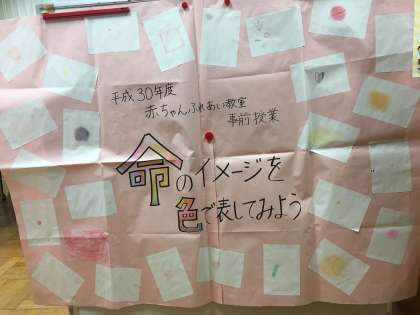 平成30年度
赤ちゃんふれあい教室
事前授業
命のイメージを
色で表してみよう